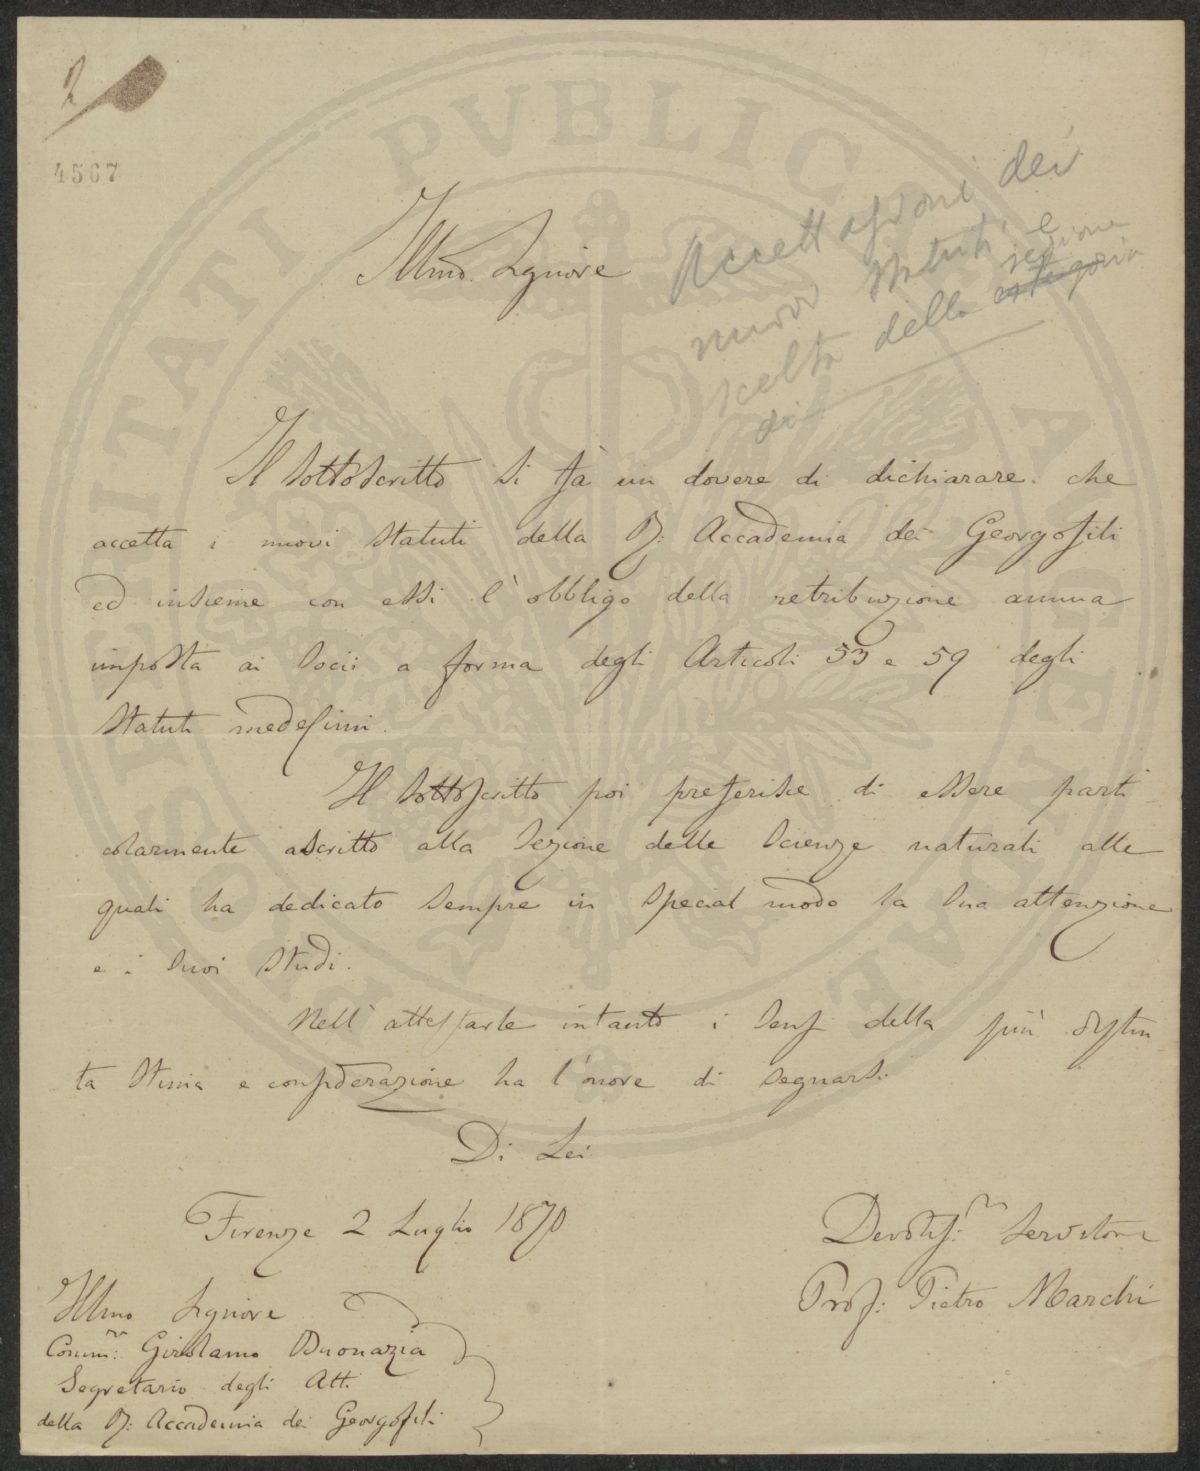 2
4567
PROSPERITATI PVBLICAE AVGENDAE
Accettazioni dei
nuovi Statuti e
scelta della categoria
sezione
di
Illmo. Signore
Il sottoscritto si fà un dovere di dichiarare che
accetta i nuovi Statuti della R: Accademia dei Georgofili
ed insieme con essi l'obbligo della retribuzione annua
imposta ai Socii a forma degli Articoli 53 e 59 degli
Statuti medesimi.
Il sottoscritto poi preferisce di essere parti
colarmente ascritto alla Sezione delle Scienze naturali alle
quali ha dedicato sempre in special modo la sua attenzione
e i suoi studi.
Nell'attestarle intanto i sensi della più distin
ta stima e considerazione ha l'onore di segnarsi.
Di Lei
Firenze 2 Luglio 1870
Devotis: Servitore
Prof: Pietro Marchi
Illmo Signore
Comm: Girolamo Buonazia
Segretario degli Atti
della R: Accademia dei Georgofili